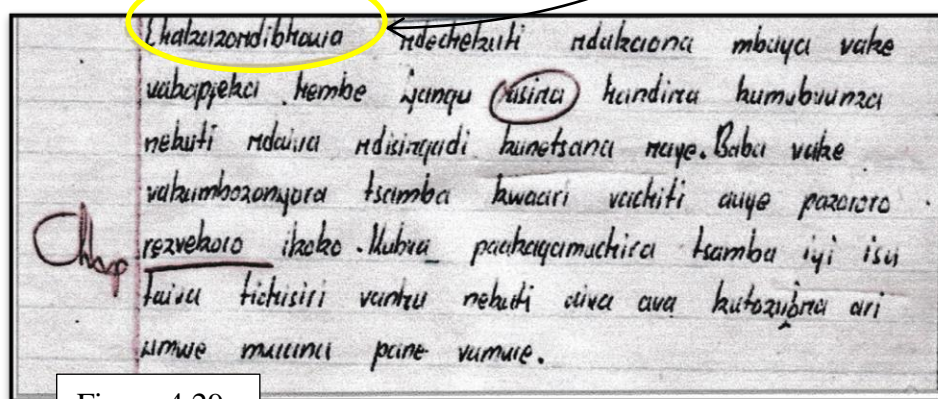 ndechekuti ndakaona mbuya vake
vakapfeka hembe yangu asina handina kumubvunza
nekuti ndaiva ndisingadi kunetsana naye. Baba vake
vakumbozonyora tsamba kwaari vachiti auye pazororo
rezvekoro ikoko. Kubva paakagamuchira tsamba iyi isu
taiva tichisiri vanhu nekuti aiva ava kutozvibna ari
umwe munhu pane vamwe.
Figure 4.20